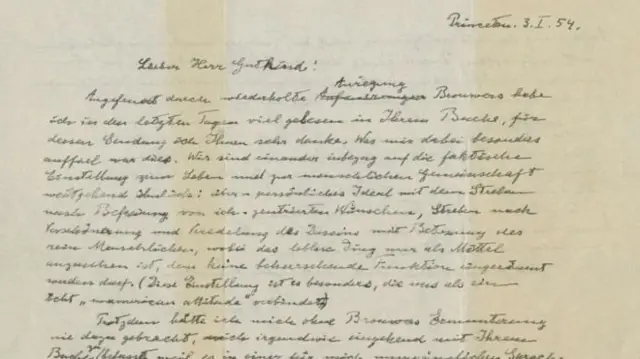 Princeton. 3. I. 54.
Lieber Herr Gutkind!
Anregung
Angefeuert durch wiederholte Brouwers habe
ich in den letzten Tagen viel gelesen in Ihrem Buche, für
dessen Sendung ich Ihnen sehr danke. Was mir dabei besonders
auffiel war dies. Wir sind einander inbezug auf die faktische
Einstellung zum Leben und zur menschlichen Gemeinschaft
weitgehend ähnlich: über-persönliches Ideal mit dem Streben
nach Befreiung von ich-zentrierten Wünschen, Streben nach
Verschönerung und Veredelung des Daseins mit Betonung des
rein Menschlichen, wobei das leblose Ding nur als Mittel
anzusehen ist, dem keine beherrschende Funktion eingeräumt
werden darf. (Diese Einstellung ist es besonders, die uns als ein
echt "unamerican attitude" verbindet)
Trotzdem hätte ich mich ohne Brouwers Ermunterung
nie dazu gebracht, mich irgendwie eingehend mit Ihrem
Buche weil es in einer für mich Sprache